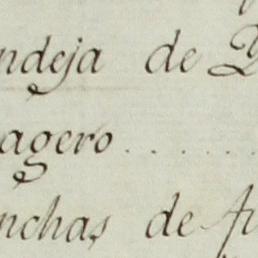 ndeja de
agero . . . . . .
nchas de fi